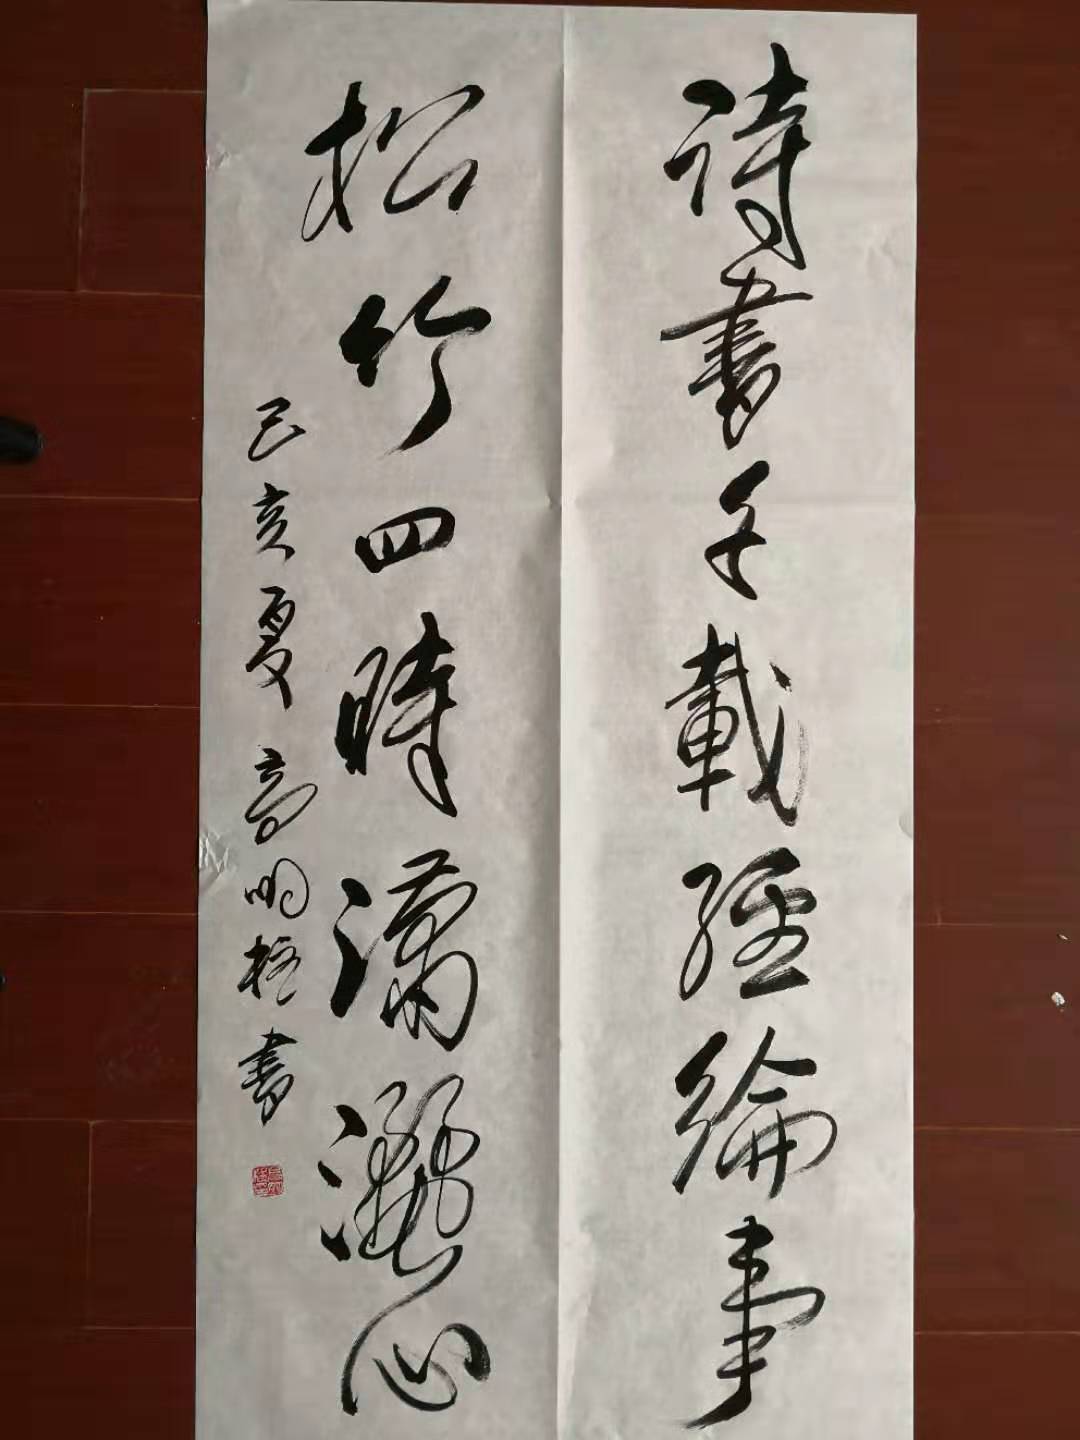 詩書千載經綸事
松竹四時瀟灑心
己亥夏高明柱書